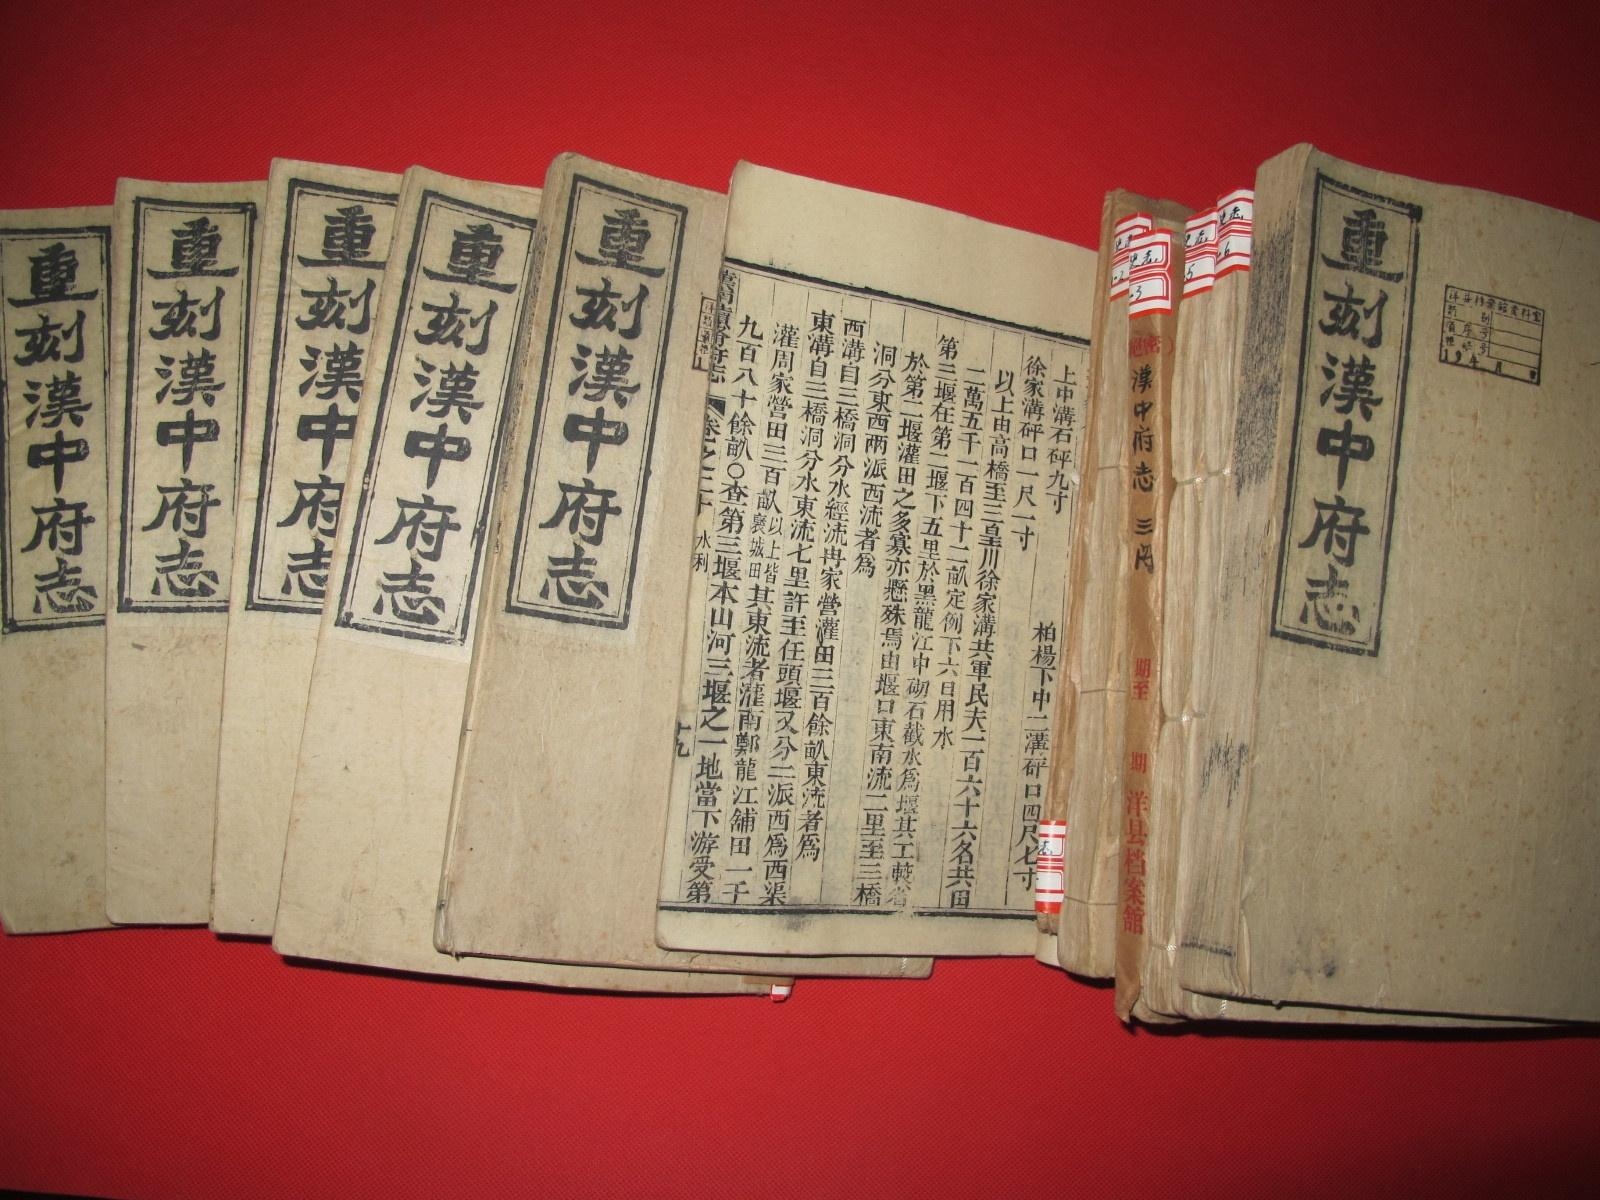 重刻漢中府志
重刻漢中府志
重刻漢中府志
重刻漢中府志
重刻漢中府志
上中溝石砰九寸
柏楊下中二溝砰口四尺七寸
徐家溝砰口一尺二寸
以上由高橋至三皇川徐家溝共軍民夫一百六十六名共田
二萬五千一百四十二畝定例下六日用水
第三堰在第二堰下五里於黑龍江中砌石截水為堰其工較省
於第二堰灌田之多寡亦懸殊焉由堰口東南流二里至三橋
洞分東西兩派西流者為
西溝自三橋洞分水經流冉家營灌田三百餘畝東流者為
東溝自三橋洞分水東流七里許至任頭堰又分二派西為西渠
灌周家營田三百畝以上皆褒城田其東流者灌南鄭龍江舖田一千
九百八十餘畝○查第三堰本山河三堰之一地當下游受第
漢南續修府志 卷之二十 水利
十九
史志
3
史志
5
史志
6
漢中府志
期至
期
洋县档案館
重刻漢中府志
19 年 月